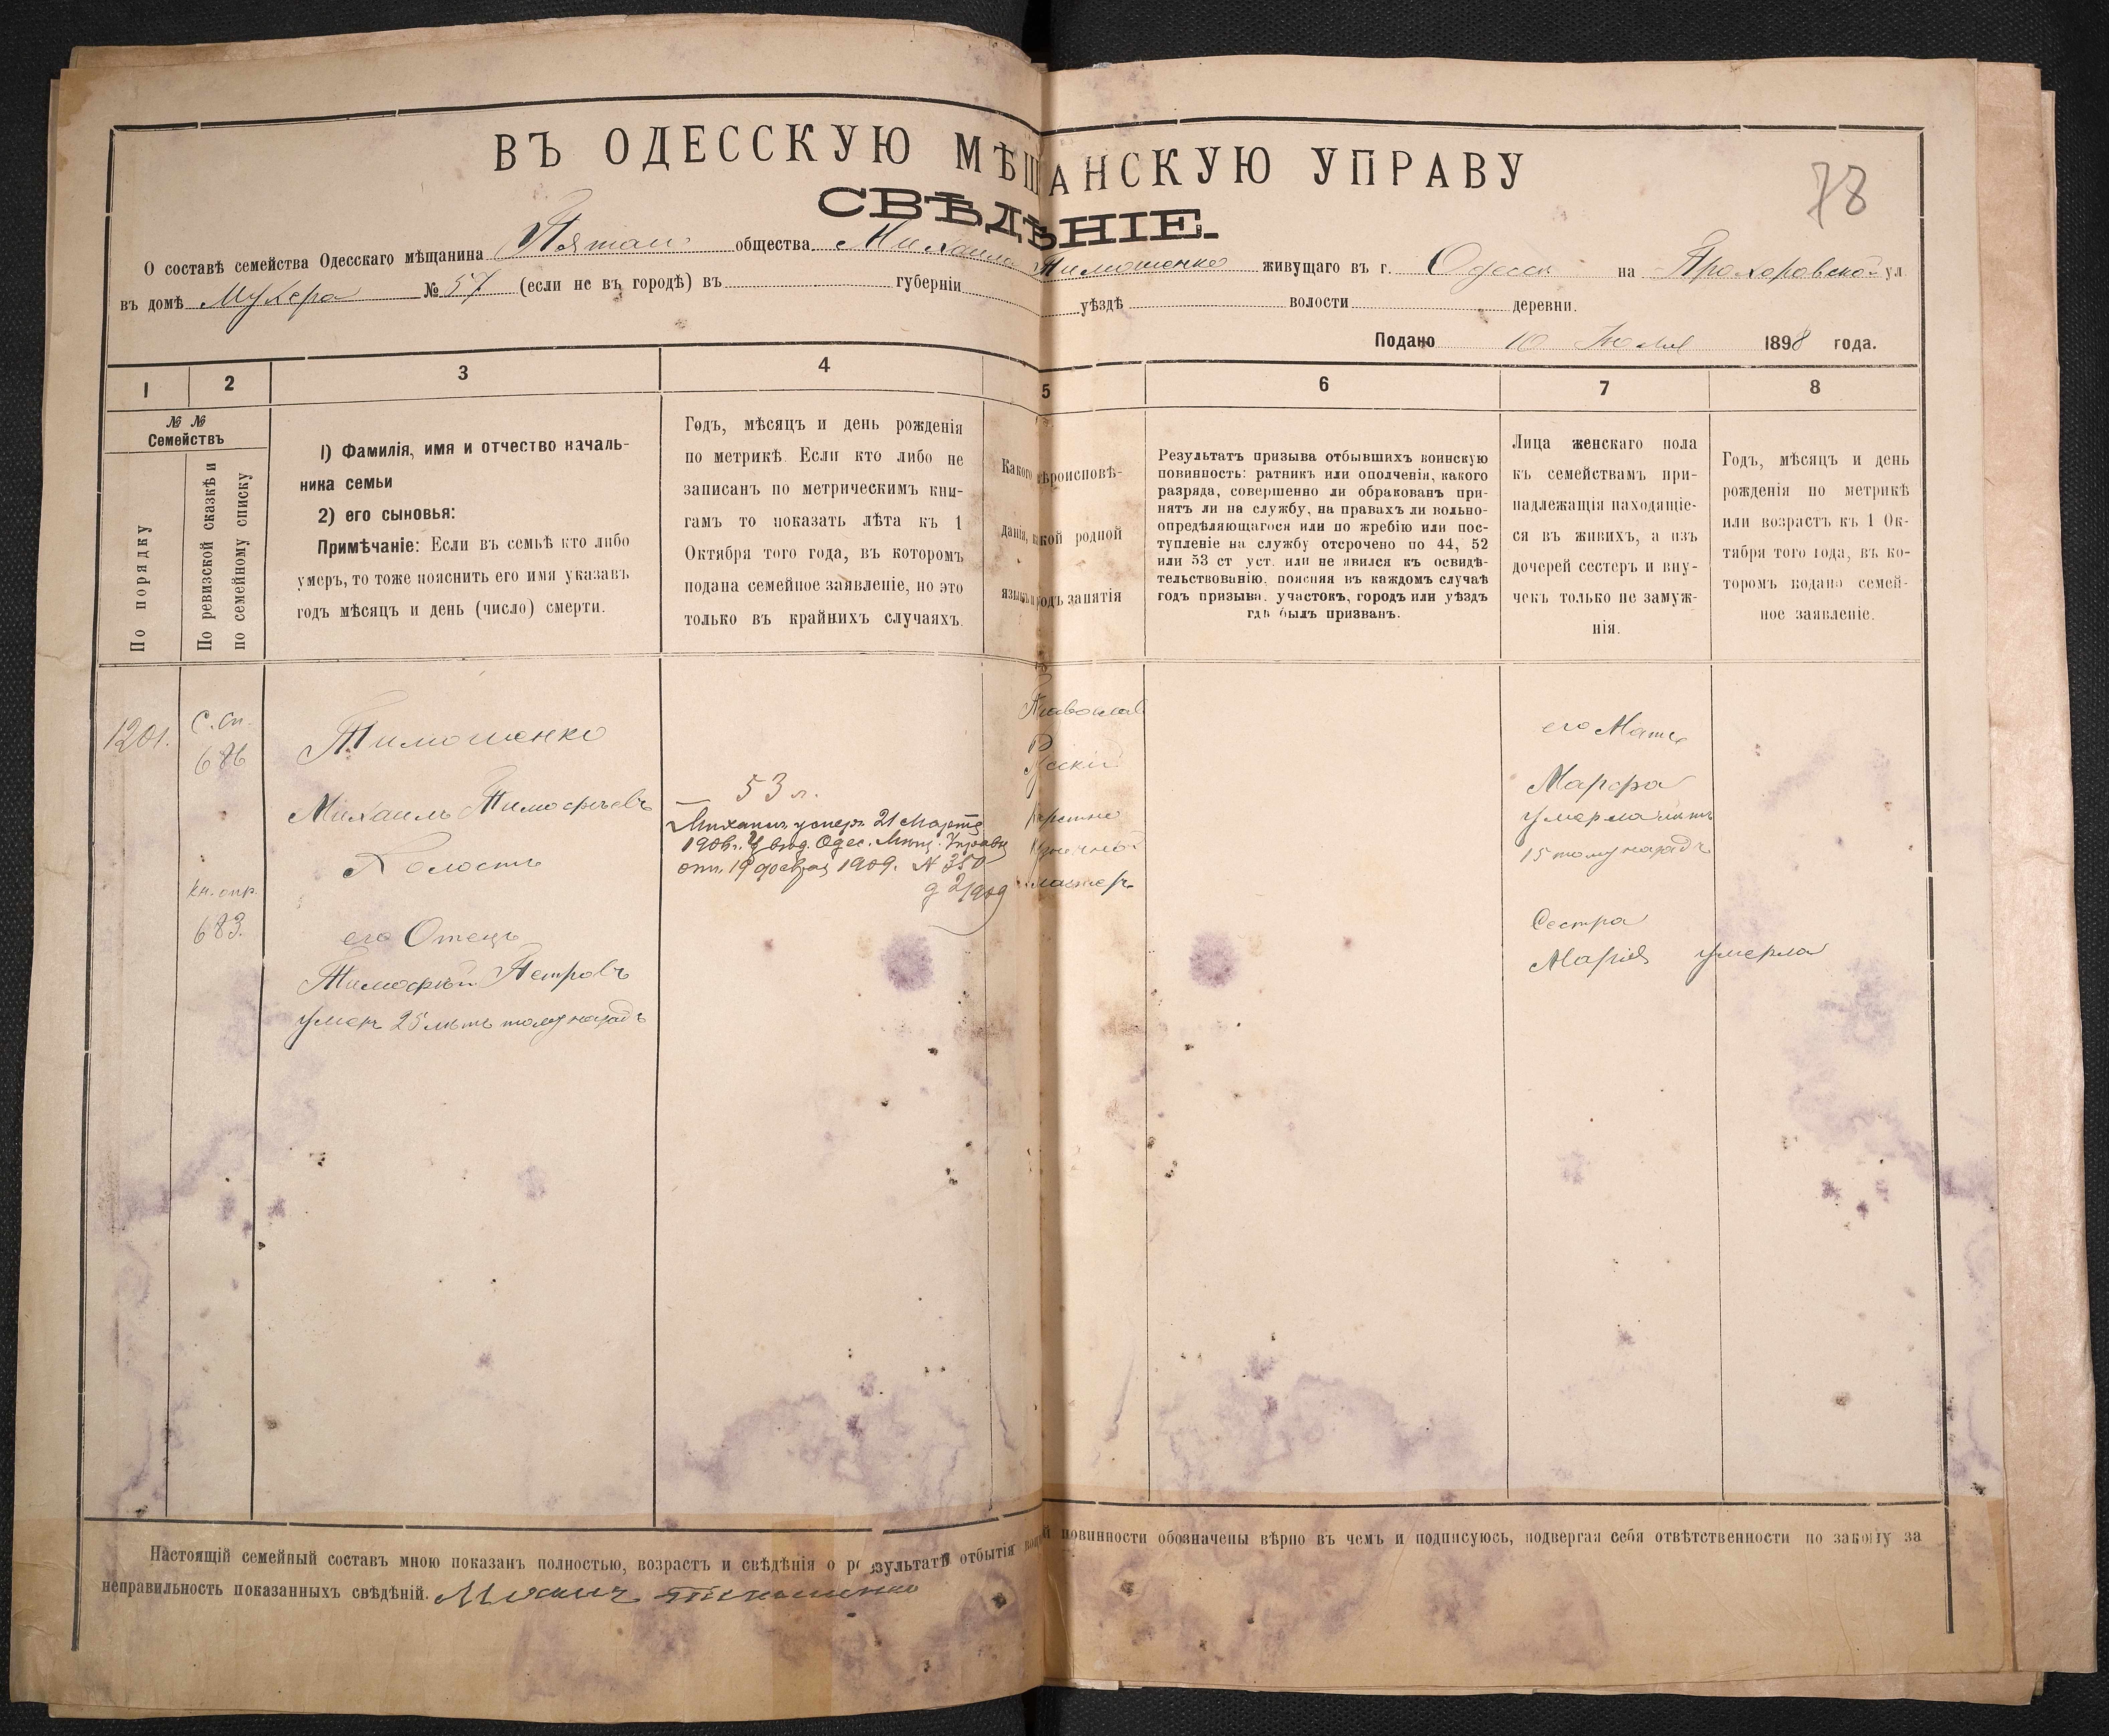 ВЪ ОДЕССКУЮ МѢЩАНСКУЮ УПРАВУ
78
СВѢДѢНІЕ.
О составѣ семейства Одесскаго мѣщанина общества Михаила Тимошенко живущаго въ г. Одесси на Прохоровской ул
въ домѣ № 57 (если не въ городѣ) въ губерніи уѣздѣ волости деревни.
Подано 10 Іюля 1898 года.
1 2 3 4 5 6 7 8
№ № Семействъ
По порядку
По ревизской сказкѣ и
по семейному списку
1) Фамилія, имя и отчество началь-
ника семьи
2) его сыновья:
Примѣчаніе: Если въ семьѣ кто либо
умеръ, то тоже пояснить его имя указавъ
годъ мѣсяцъ и день (число) смерти.
Годъ, мѣсяцъ и день рожденія
по метрикѣ. Если кто либо не
записанъ по метрическимъ кни-
гамъ то показать лѣта къ 1
Октября того года, въ которомъ
подана семейное заявленіе, но это
только въ крайнихъ случаяхъ.
Какого вѣроисповѣ-
данія, какой родной
языкъ и родъ занятія
Результатъ призыва отбывшихъ воинскую
повинность: ратникъ или ополченія, какого
разряда, совершенно ли обракованъ при-
нятъ ли на службу, на правахъ ли вольно-
опредѣляющагося или по жребію или пос-
тупленіе на службу отсрочено по 44, 52
или 53 ст уст. или не явился къ освидѣ-
тельствованію, поясняя въ каждомъ случаѣ
годъ призыва, участокъ, городъ или уѣздъ
гдѣ былъ призванъ.
Лица женскаго пола
къ семействамъ при-
надлежащія находящіе-
ся въ живихъ, а изъ
дочерей сестеръ и вну-
чекъ только не замуж-
нія.
Годъ, мѣсяцъ и день
рожденія по метрикѣ
или возрастъ къ 1 Ок-
тября того года, въ ко-
торомъ подано семей-
ное заявленіе.
1201.
С. сп.
686
Кн. опр.
683.
Тимошенко
Михаилъ Тимофѣевъ
Холостъ
его Отецъ
Тимофѣй Петровъ
умеръ 25 лѣтъ тому назадъ
53 л.
Михаилъ умеръ 21 Марта
1906 г. Одес. Мѣщ. Управы
отъ 19 февраля 1909. N 350
д 2/909
Православ
Рускій
мастеръ
его Мать
Марфа
умерла лѣтъ
15 тому назадъ
Сестра
Марія умерла
Настоящій семейный составъ мною показанъ полностью, возрастъ и свѣдѣнія о результатѣ отбытія воинской повинности обозначены вѣрно въ чемъ и подписуюсь, подвергая себя отвѣтственности по закону за
неправильность показанныхъ свѣдѣній. Михаилъ Тимошенко